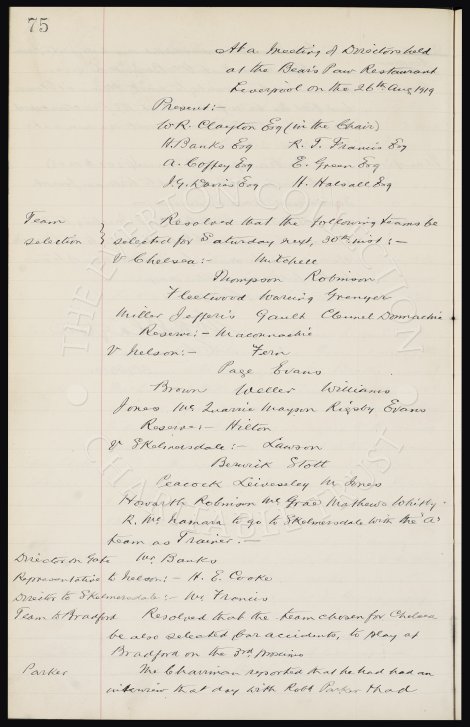 75
At a Meeting of Directors held
at the Bear's Paw Restaurant
Liverpool on the 26th Aug 1919
Present:-
W.R. Clayton Esq (in the Chair)
H. Banks Esq R. T. Francis Esq
A. Coffey Esq E. Green Esq
J.G. Davies Esq H. Halsall Esq
Team Resolved that the following teams be
selection } selected for Saturday next, 30th inst:-
V Chelsea:- Mitchell
Thompson Robinson
Fleetwood Wareing Grenyer
Miller Jefferis Gault Clennell Donnachie
Reserve:- Maconnachie
V Nelson:- Fern
Page Evans
Brown Weller Williams
Jones Mc Quarrie Mayson Rigsby Evans
Reserve:- Hilton
V Skelmersdale:- Lawson
Berwick Stott
Peacock Leivesley W Jones
Howarth Robinson Mc Grae Mathews Whitby.
R. Mc Namara to go to Skelmersdale with the 'A'
team as Trainer.-
Director on Gate Mr. Banks
Representative to Nelson:- H. E. Cooke
Director to Skelmersdale:- Mr Francis
Team to Bradford Resolved that the team chosen for Chelsea
be also selected, bar accidents, to play at
Bradford on the 3rd proximo
Parker The Chairman reported that he had had an
interview that day with Robt Parker & had
THE EVERTON COLLECTION
CHARITABLE TRUST